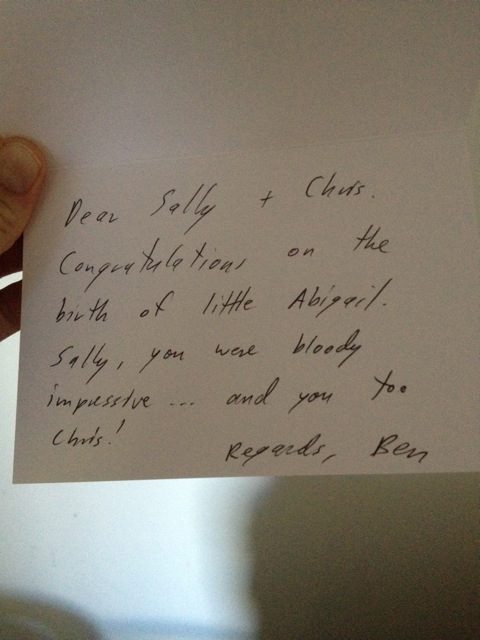 Dear Sally + Chris.
Congratulations on the
birth of little Abigail.
Sally, you were bloody
impressive ... and you too
Chris!
Regards, Ben